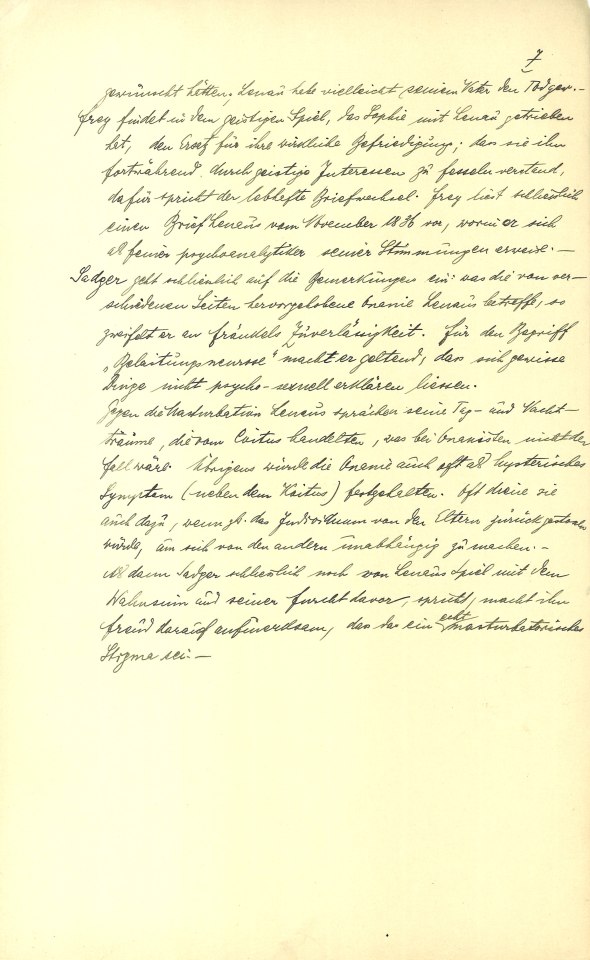 7
gewünscht hätten; Lenau habe vielleicht seinem Vater den Tod gew.-
Frey findet in dem geistigen Spiel, das Sophie mit Lenau getrieben
hat, den Ersatz für ihre wirkliche Befriedigung; dass sie ihn
fortwährend durch geistige Interessen zu fesseln verstand,
dafür spricht der lebhafte Briefwechsel. Frey liest schliesslich
einen Brief Lenaus vom November 1836 vor, worin er sich
als feiner psychoanalytiker seiner Stimmungen erweise.—
Sadger geht schliesslich auf die Bemerkungen ein: was die von ver-
schiedenen Seiten hervorgehobene Onanie Lenaus betreffe, so
zweifelt er an Fränkels Zuverlässigkeit. Für den Begriff
„Belastungsneurose" macht er geltend, dass sich gewisse
Dinge nicht psycho-sexuell erklären liessen.
Gegen die Masturbation Lenaus sprächen seine Tag- und Nacht-
träume, die vom Coitus handelten, was bei Onanisten nicht der
Fall wäre. Übrigens würde die Onanie auch oft als hysterisches
Symptom (neben dem Koitus) festgehalten. Oft diene sie
auch dazu, wenn zb. das Individuum von den Eltern zurückgestossen
würde, um sich von den andern unabhängig zu machen.-
Als dann Sadger schliesslich noch von Lenaus Spiel mit dem
Wahnsinn und seiner Furcht davor, spricht, macht ihn
Freud darauf aufmerksam, dass das ein echt masturbatorisches
Stigma sei.—